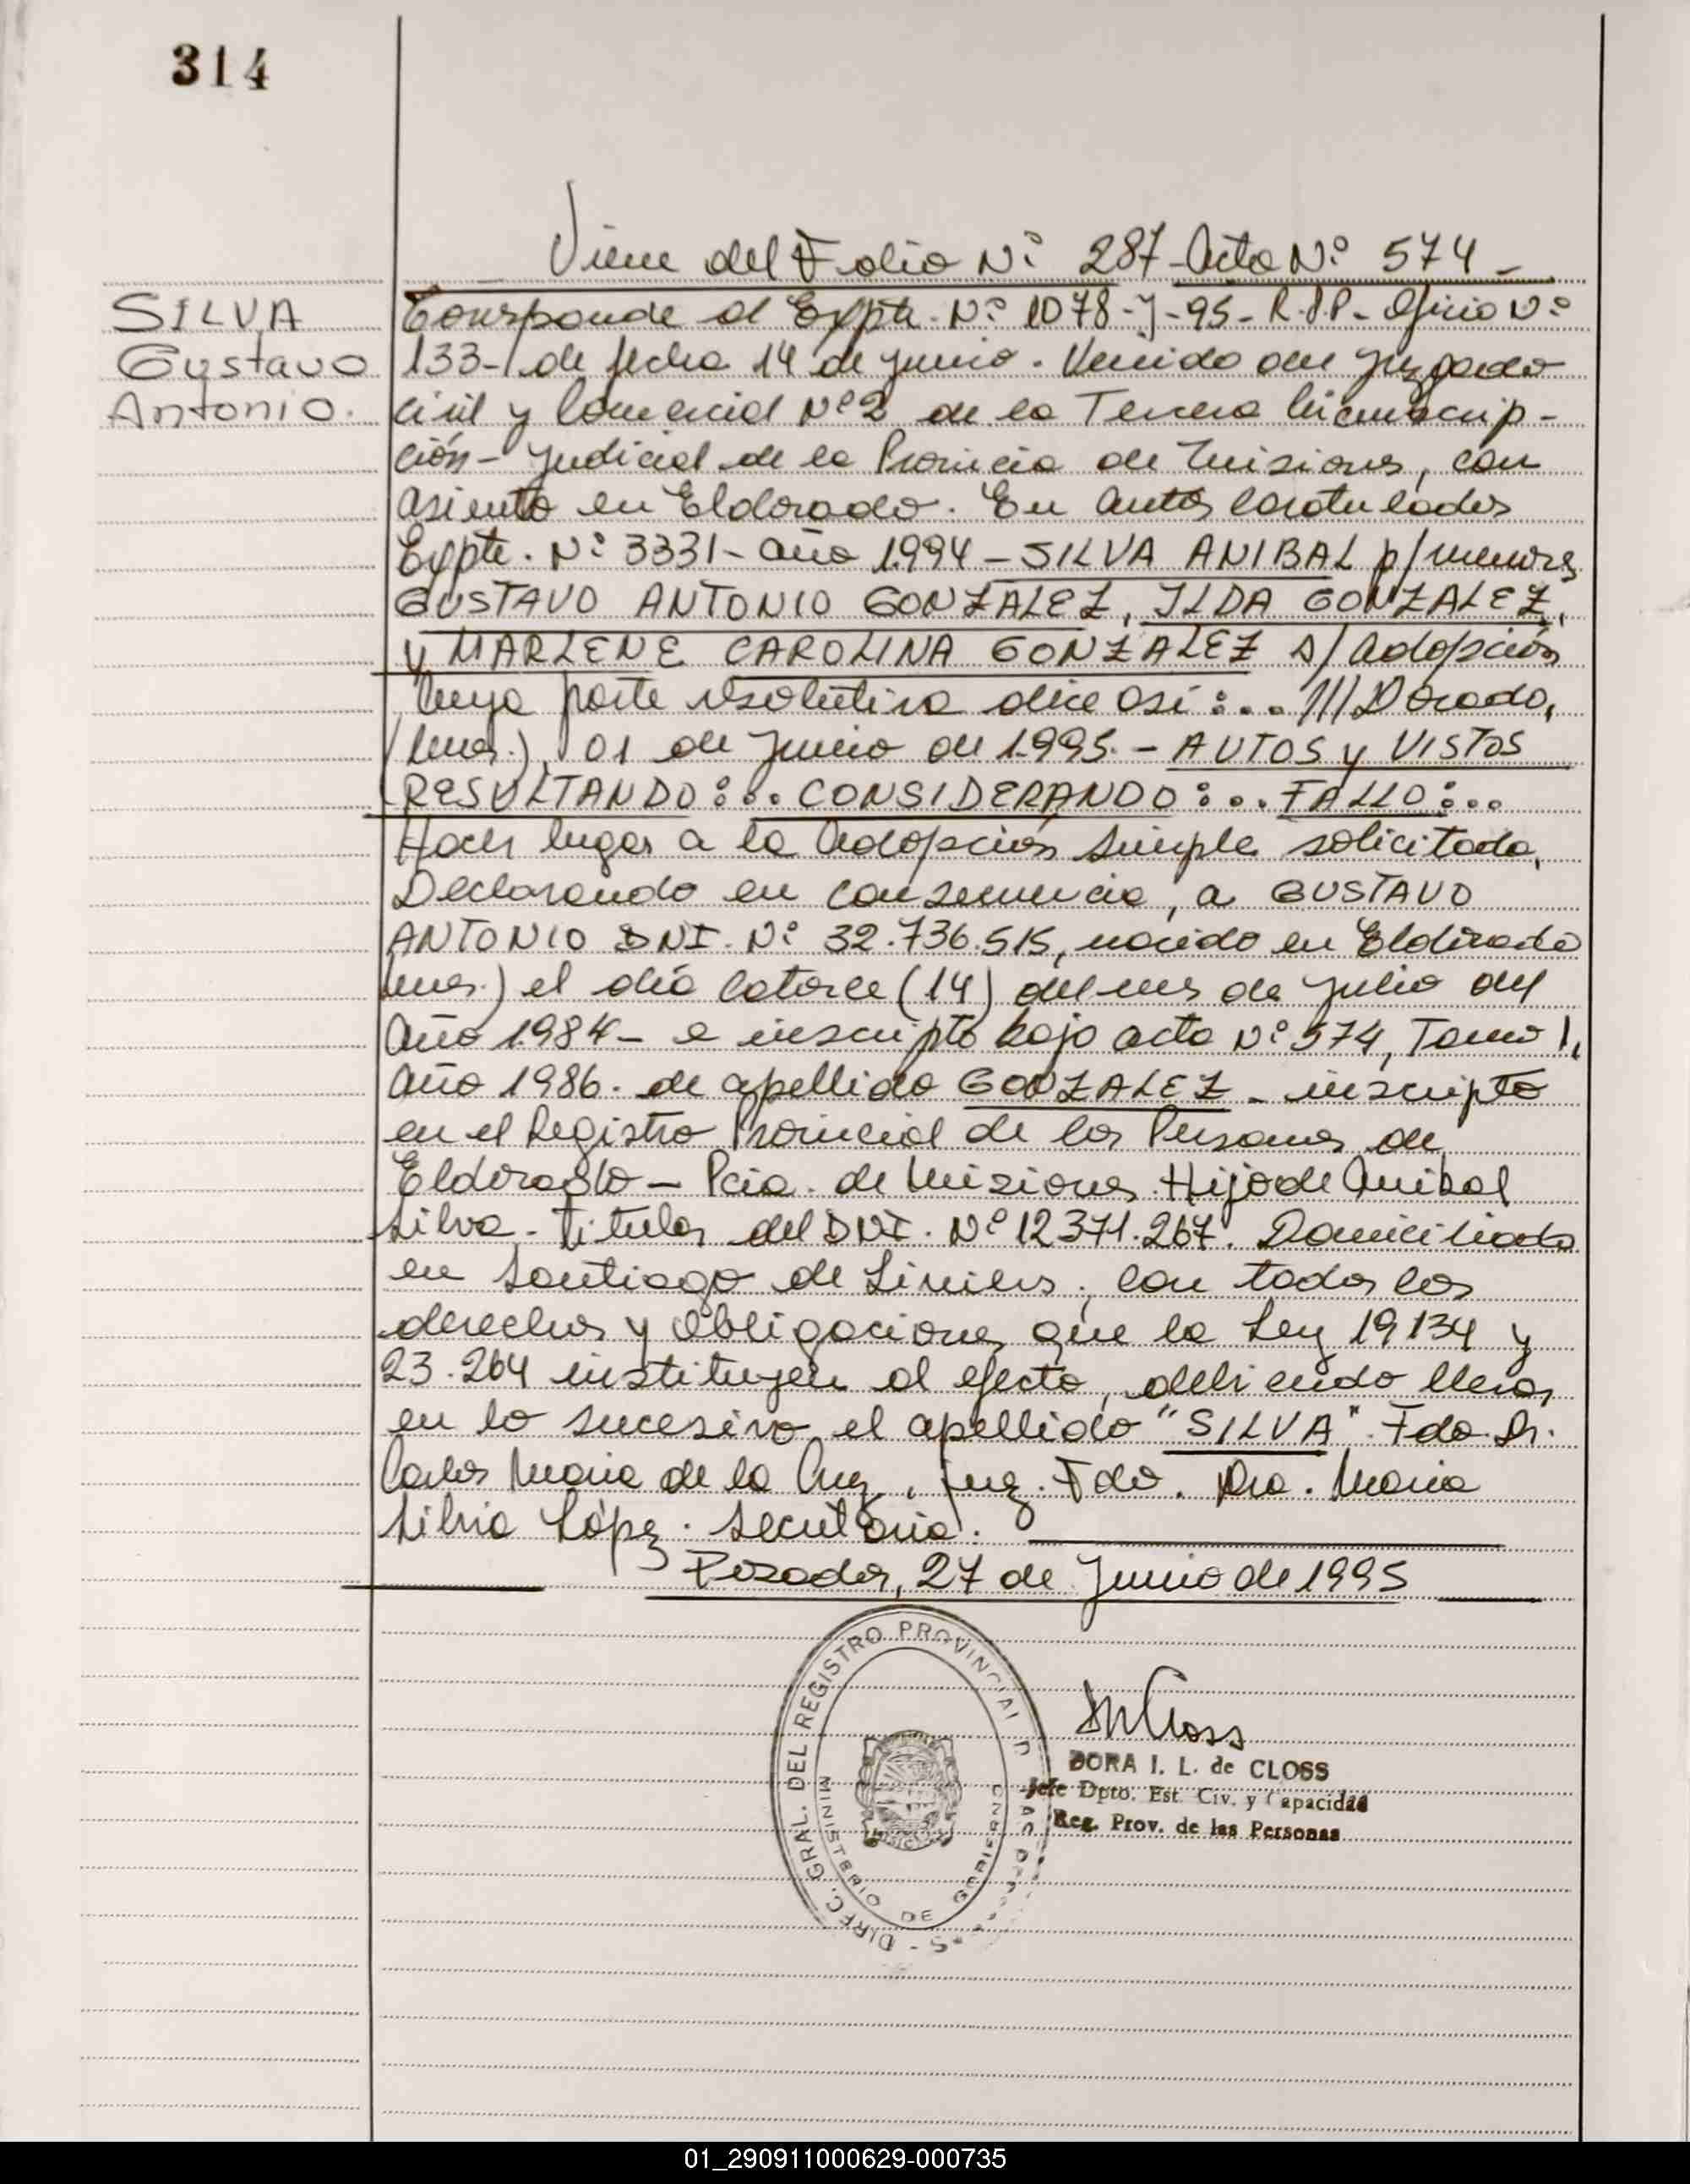 314
Viene del Folio Nº 287 - Acta Nº 574 -
SILVA
Gustavo
Antonio.
Corresponde al Expte. Nº 1078-J-95- R.P.P.- Oficio Nº
133- de fecha 14 de junio. Venido del Juzgado
Civil y Comercial Nº2 de la Tercera Circunscrip-
ción- Judicial de la Provincia de Misiones, con
asiento en Eldorado. En autos caratulados
Expte. Nº 3331- año 1.994 - SILVA ANIBAL p/menores
GUSTAVO ANTONIO GONZALEZ, ILDA GONZALEZ,
y MARLENE CAROLINA GONZALEZ s/ adopción
Cuya parte resolutiva dice así:... ///Dorado,
(Mnes.), 01 de junio de 1.995. - AUTOS y VISTOS
RESULTANDO:... CONSIDERANDO:... FALLO:...
Hacer lugar a la adopción simple solicitada,
Declarando en consecuencia, a GUSTAVO
ANTONIO DNI. Nº 32.736.515, nacido en Eldorado
Mnes.) el día catorce (14) del mes de julio del
año 1.984- e inscripto bajo acta Nº 574, Tomo I,
año 1986. de apellido GONZALEZ - inscripto
en el Registro Provincial de las Personas de
Eldorado - Pcia. de Misiones. Hijo de Anibal
Silva - Titular del DNI. Nº 12.371.267. Domiciliado
en Santiago de Liniers, con todos los
derechos y obligaciones que la Ley 19134 y
23.264 instituyen al efecto, debiendo llevar
en lo sucesivo el apellido "SILVA". Fdo. Dr.
Carlos Maria de la Cruz. Juez. Fdo. Dra. Maria
Silvia López. Secretaria.
Posadas, 27 de Junio de 1995
DIREC. GRAL. DEL REGISTRO PROVINCIAL D
MINISTERIO DE GOBIERNO
DORA I. L. de CLOSS
Jefe Dpto. Est. Civ. y Capacidad
Reg. Prov. de las Personas
01_290911000629-000735